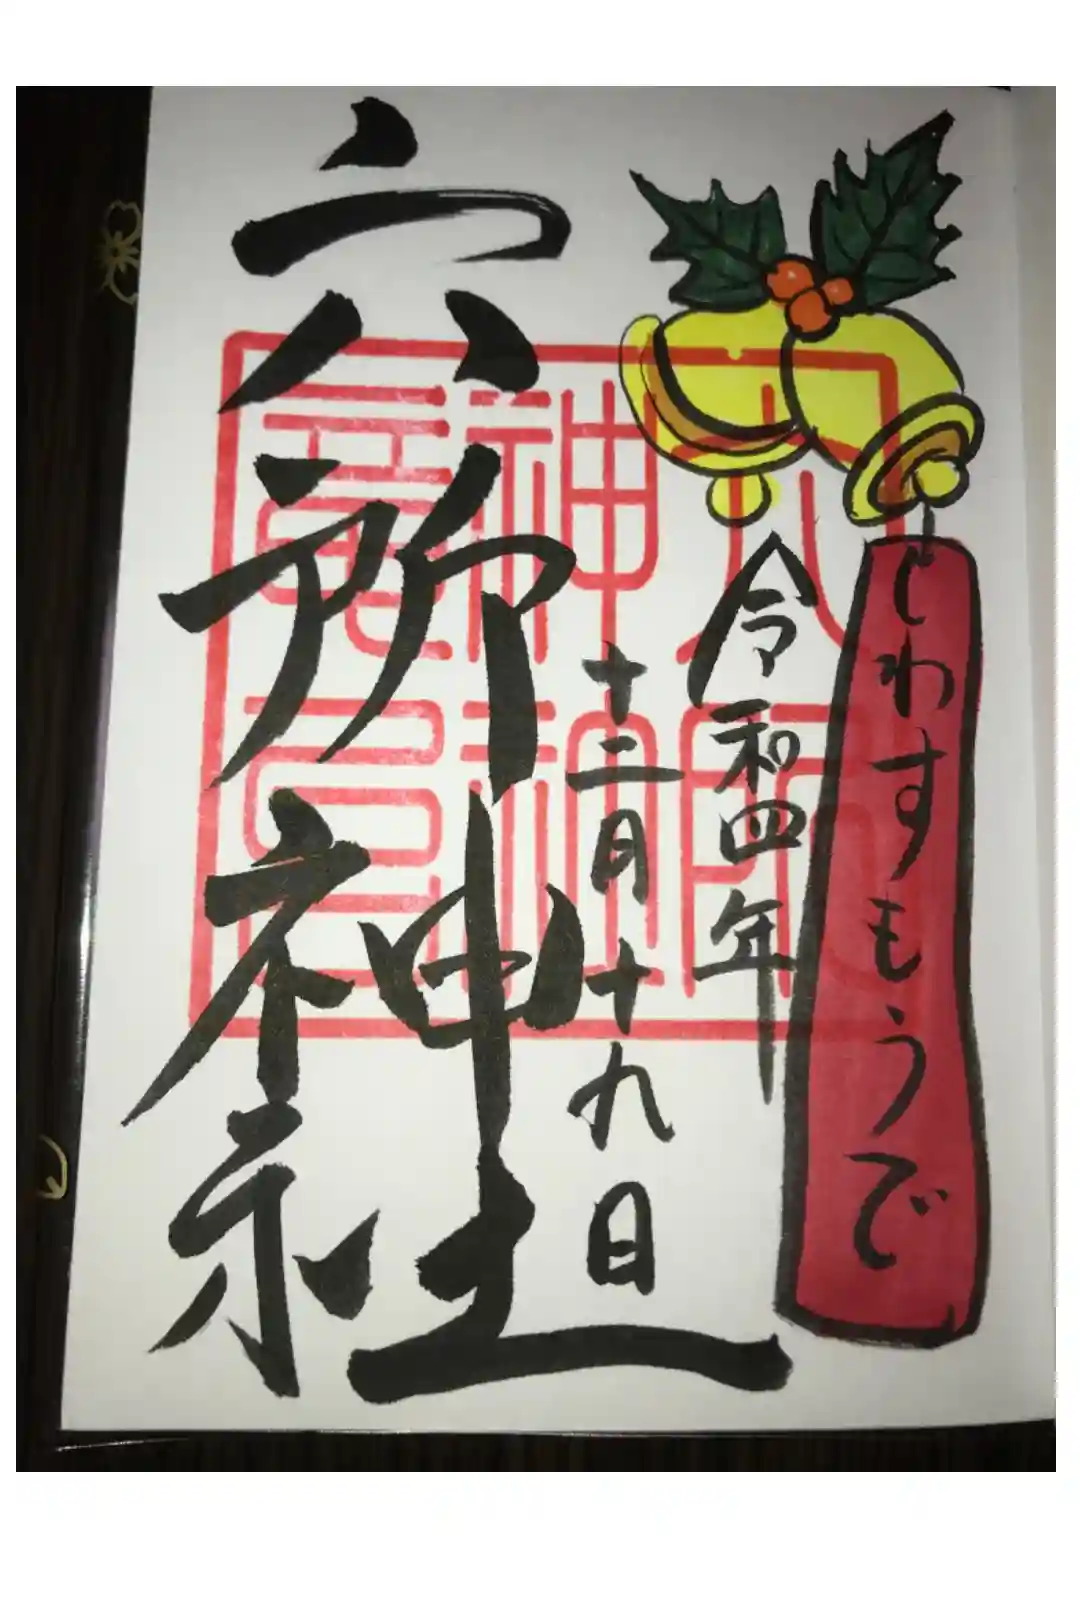 しわすもうで
令和四年
十二月十九日
六所神社
六所
神社